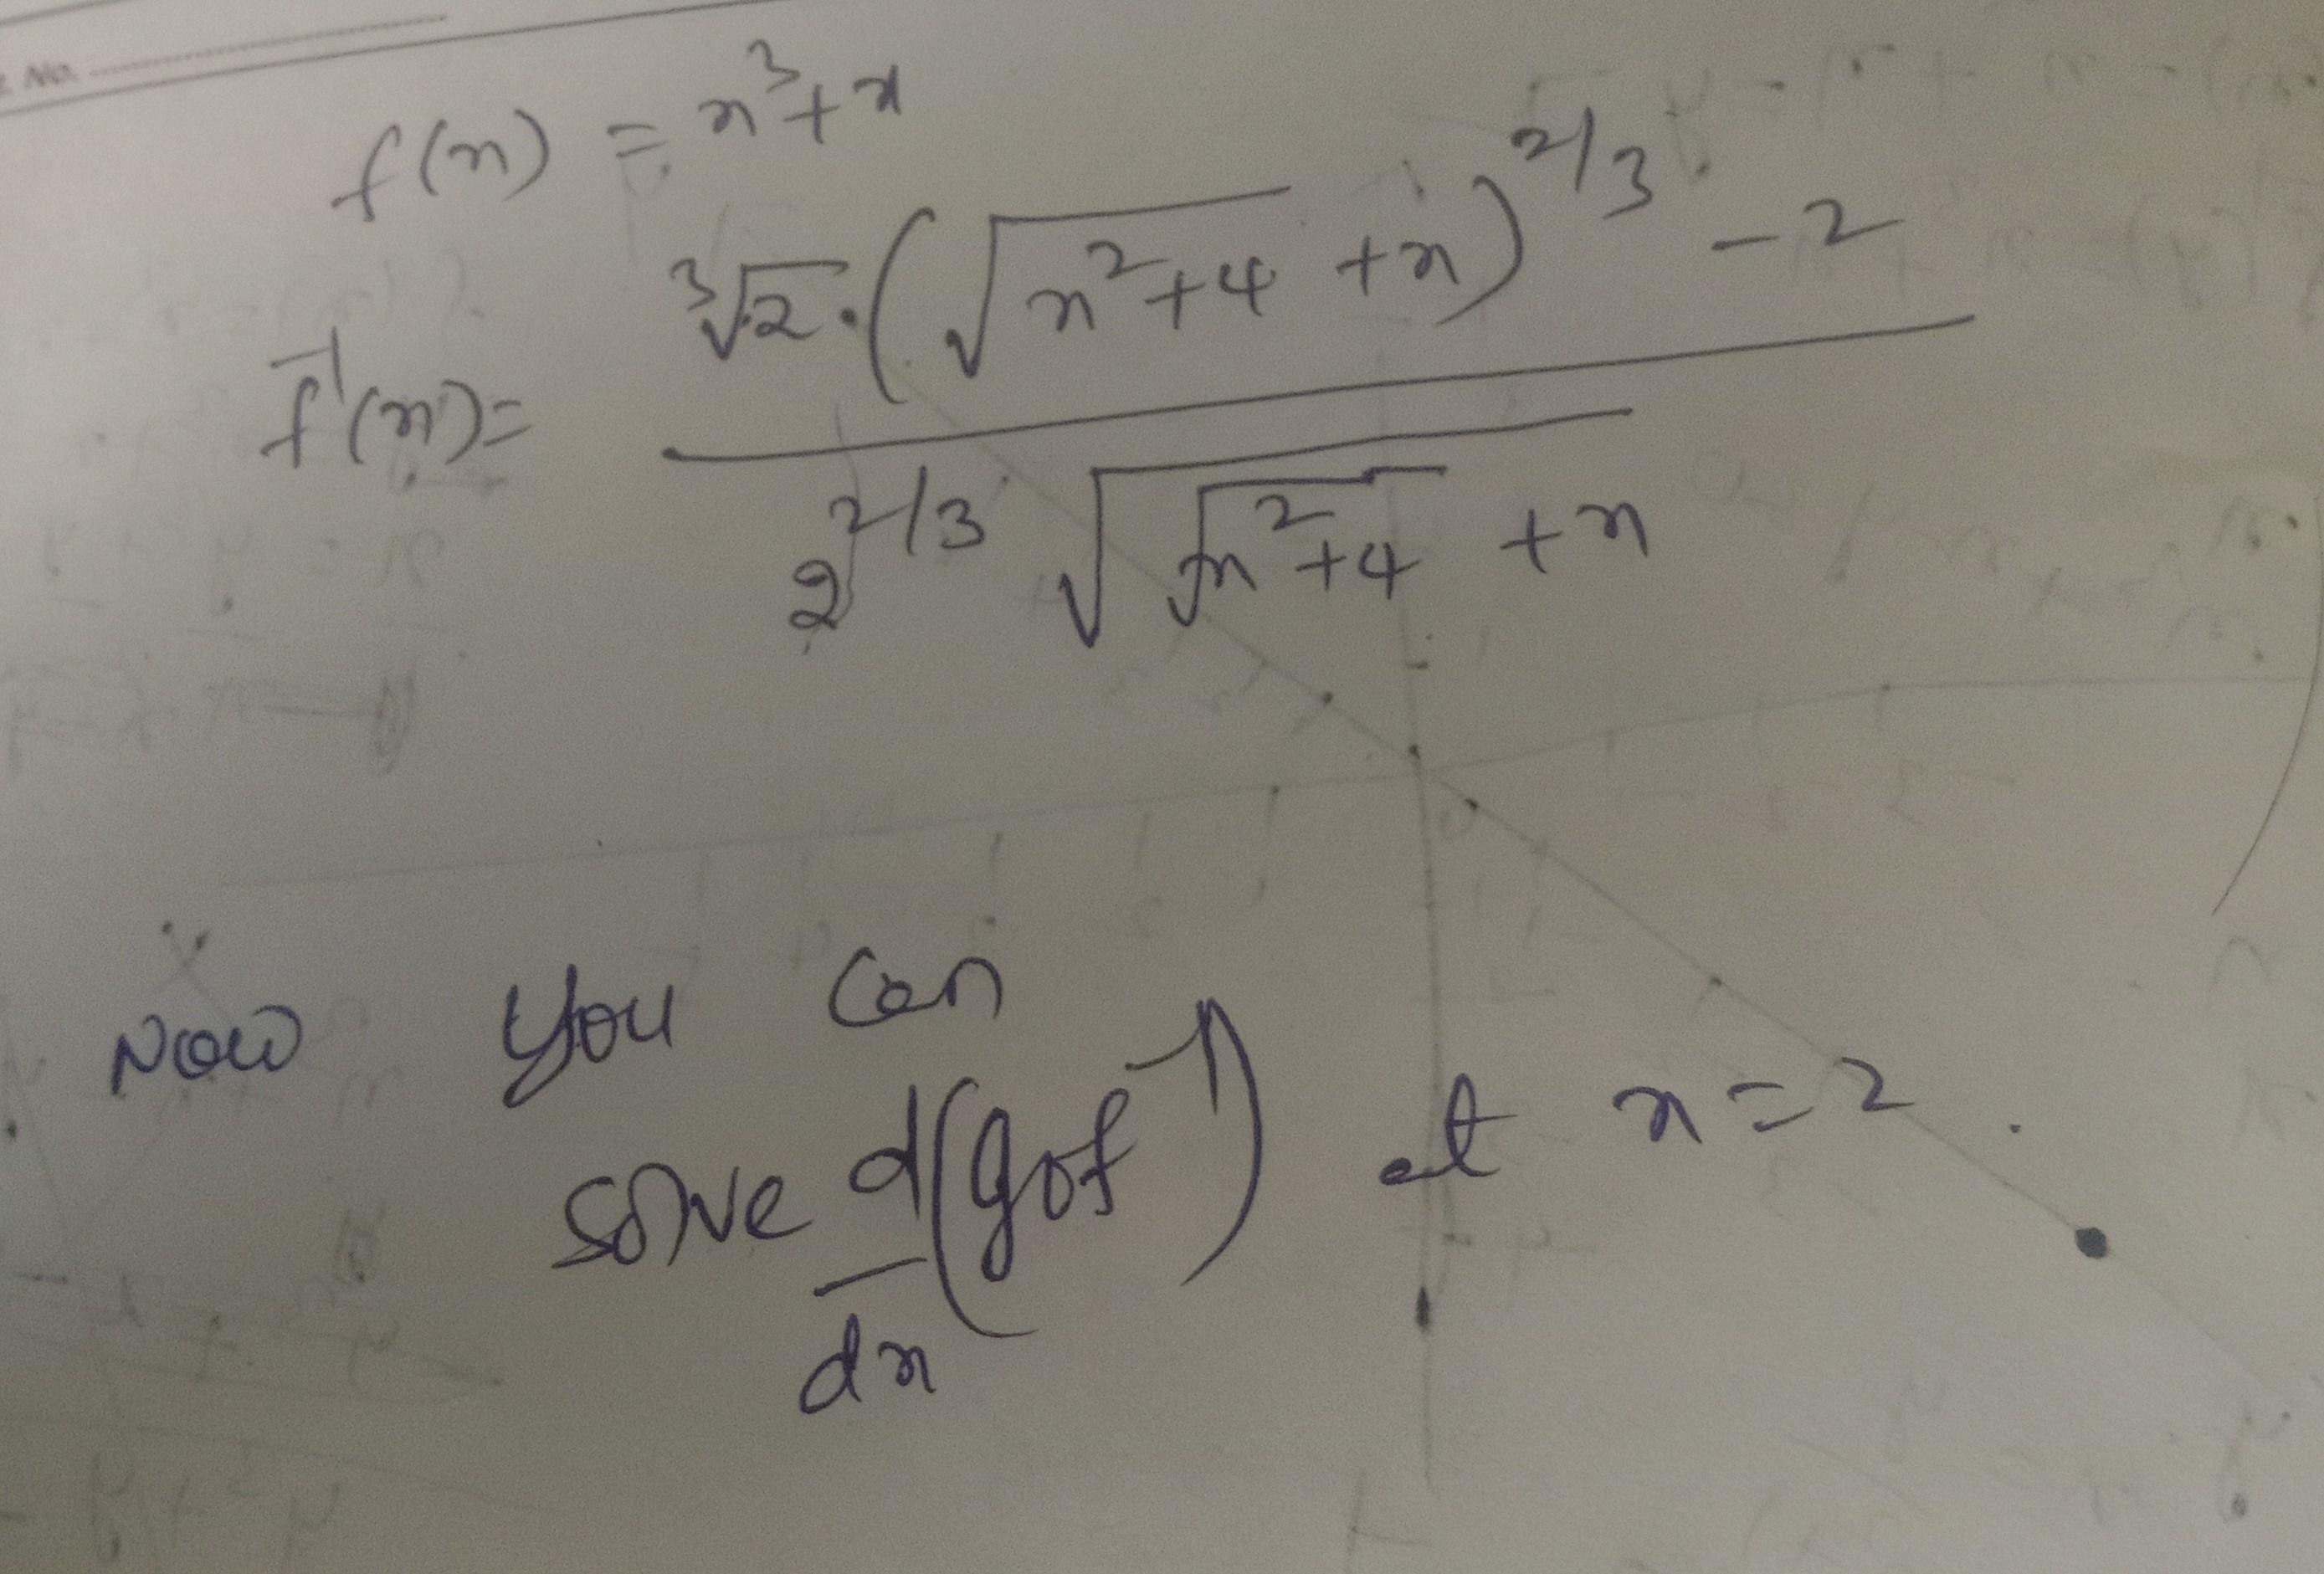 No.
f(x) = x³+x
f⁻¹(x) = (∛2·(√(x²+4) +x)^(2/3) −2) / (2^(2/3) √(√(x²+4) +x))
Now you can
solve d/dx (gof⁻¹) at x=2.